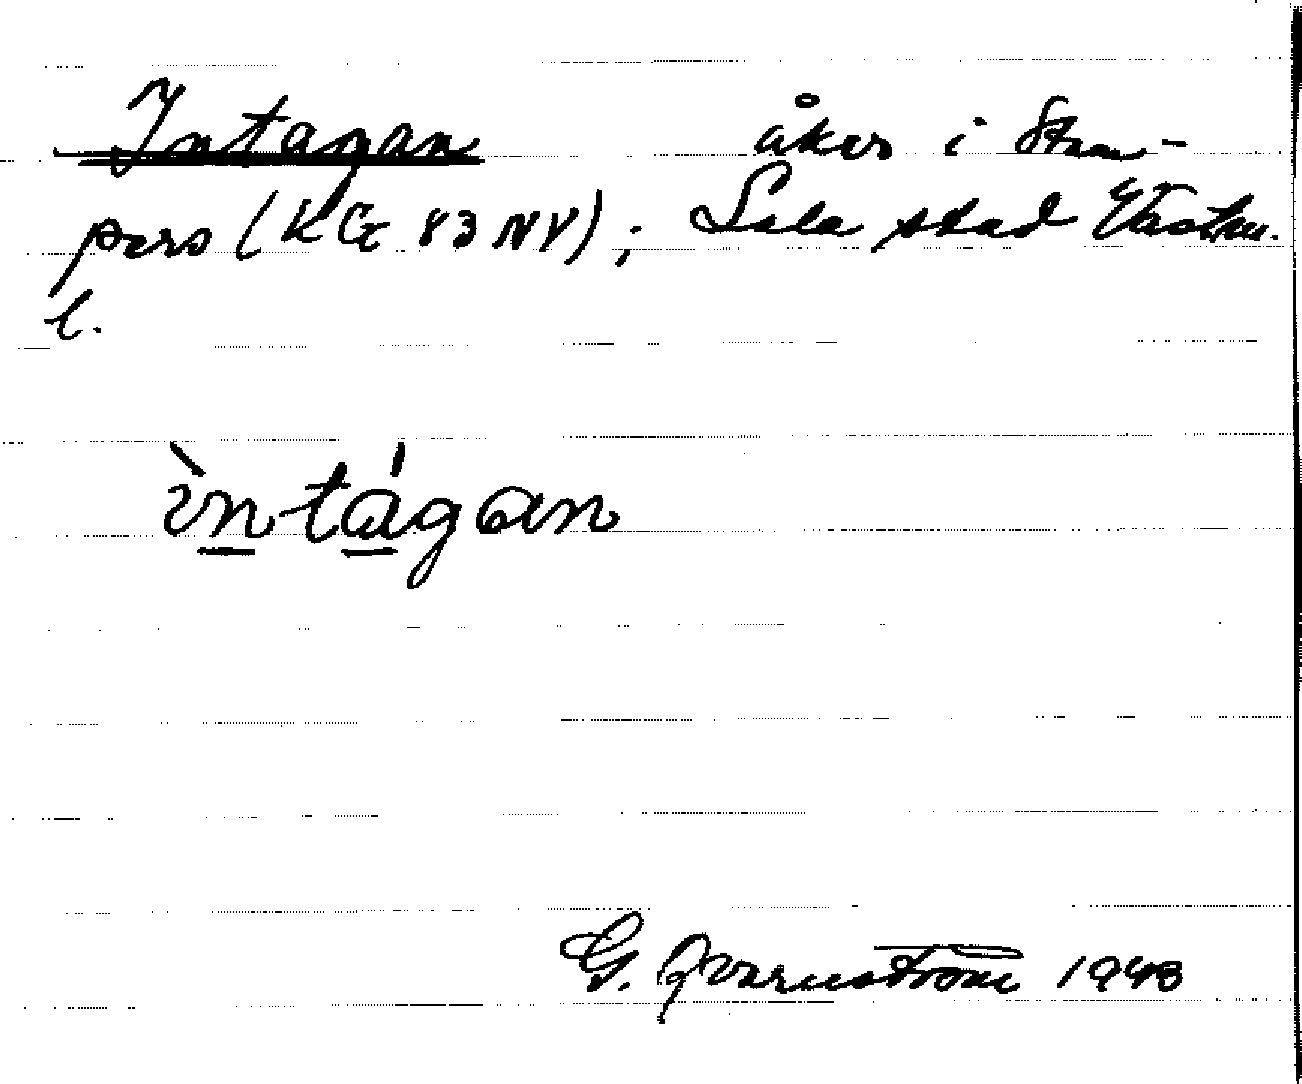 Intagan åker i Stam-
pers (KG 83 NV); Sala stad Västm.
l.
ìntágan
G. Qvarnström 1943